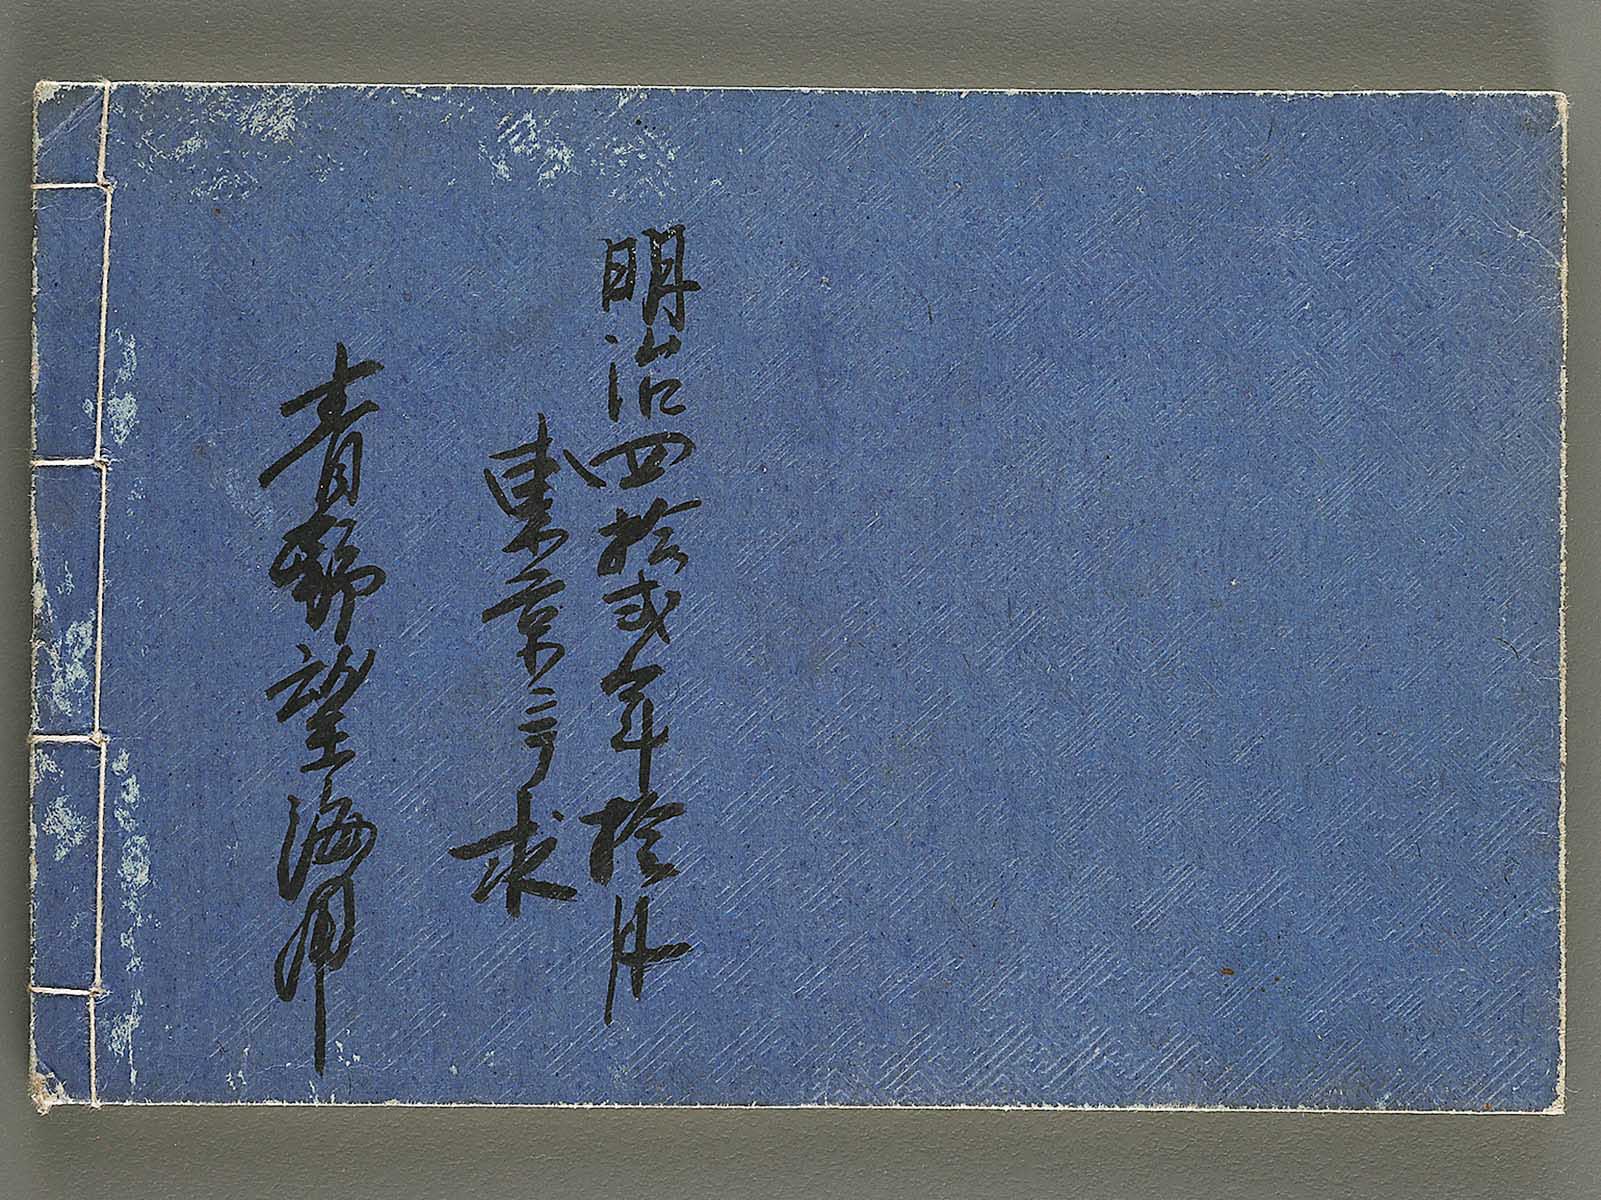 明治四拾弐年拾月
東京ニテ求
青野望海用